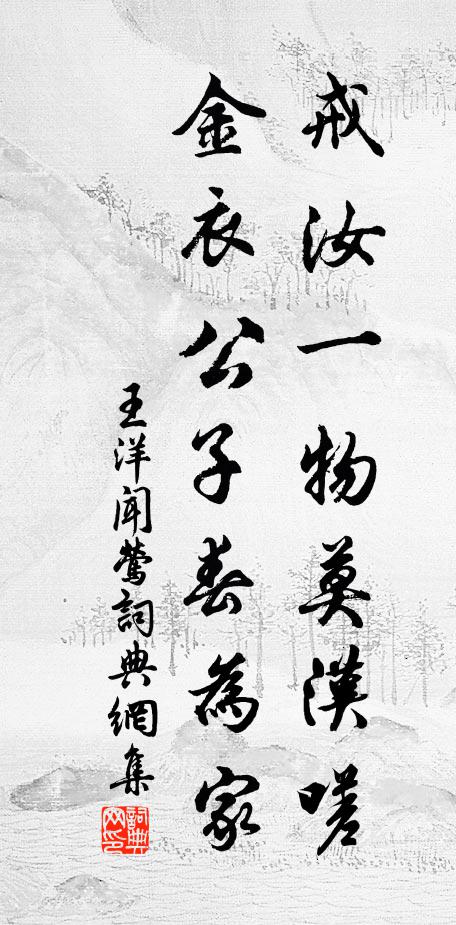 戒汝一物莫漢嗟
金衣公子春為家
王洋聞鶯詞典網集
詞典
网印